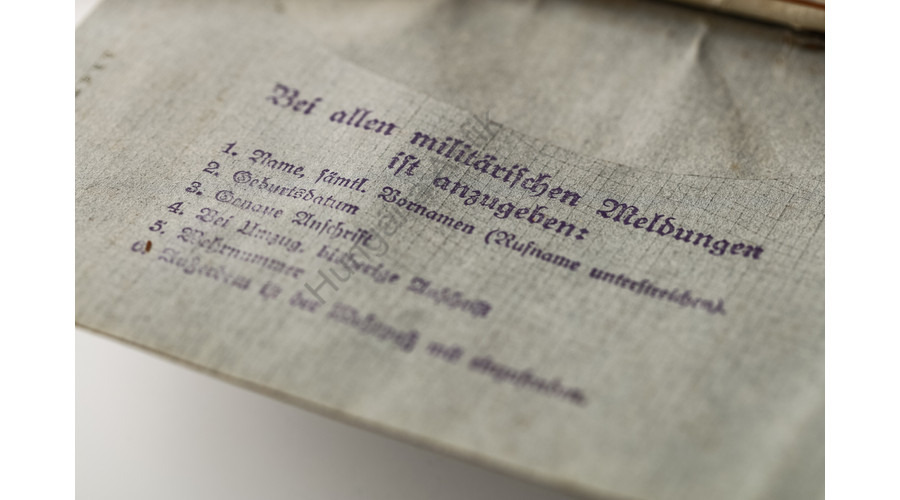 Bei allen militärischen Meldungen
ist anzugeben:
1. Name, sämtl. Vornamen (Rufname unterstreichen).
2. Geburtsdatum
3. Genaue Anschrift
4. Bei Umzug, bisherige Anschrift
5. Wehrnummer
6. Außerdem ist der Wehrpaß mit